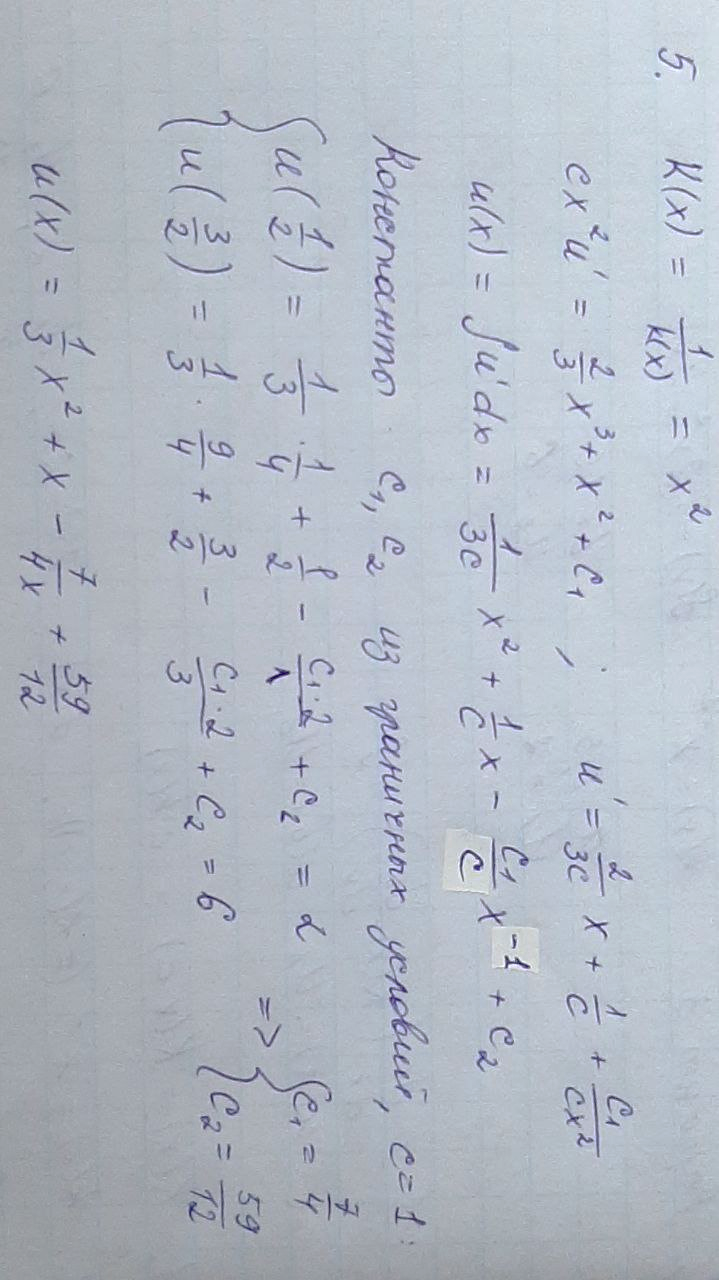 5. K(x) = 1/k(x) = x²
cx²u' = 2/3 x³ + x² + C₁ ; u' = 2/3c x + 1/c + C₁/cx²
u(x) = ∫u'dx = 1/3c x² + 1/c x − C₁/c x⁻¹ + C₂
Константы C₁, C₂ из граничных условий, c=1:
{ u(1/2) = 1/3 · 1/4 + 1/2 − C₁·2/1 + C₂ = 2
{ u(3/2) = 1/3 · 9/4 + 3/2 − C₁·2/3 + C₂ = 6
=> { C₁ = 7/4
{ C₂ = 59/12
u(x) = 1/3 x² + x − 7/4x + 59/12